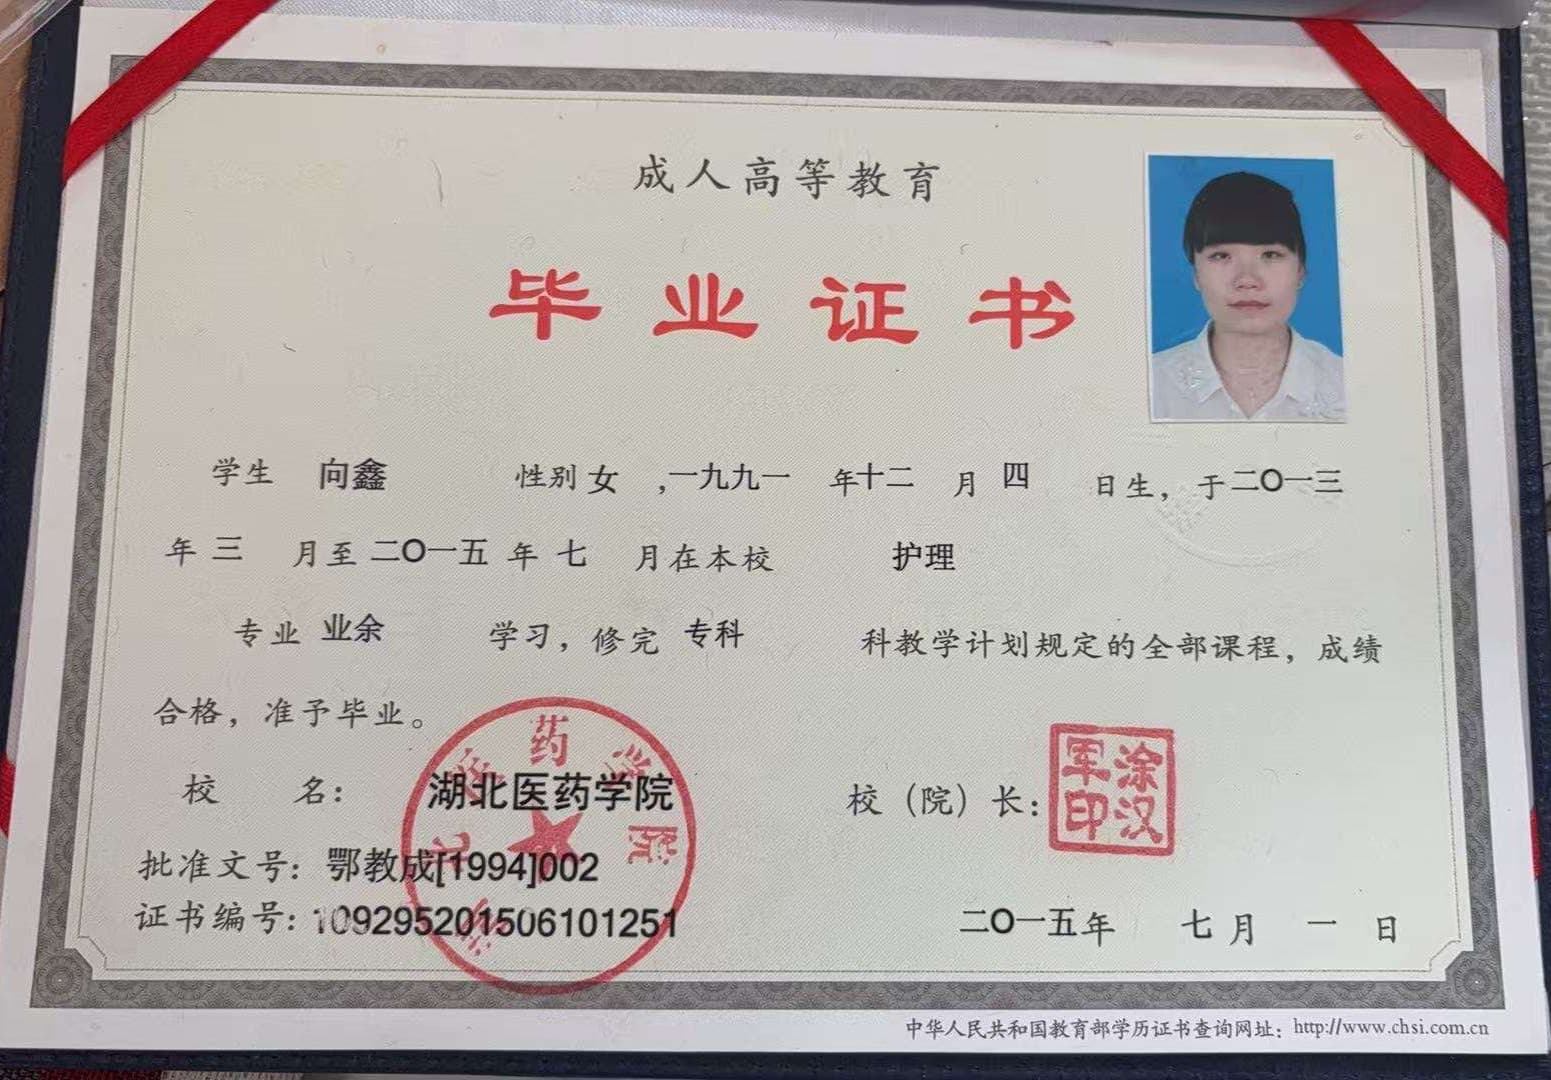 成人高等教育
毕业证书
学生 向鑫 性别 女 ,一九九一 年 十二 月 四 日生，于 二〇一三
年 三 月至 二〇一五 年 七 月在本校 护理
专业 业余 学习，修完 专科 科教学计划规定的全部课程，成绩
合格，准予毕业。
校 名： 湖北医药学院 校（院）长：
涂汉军印
批准文号：鄂教成[1994]002
证书编号：109295201506101251 二〇一五年 七月 一 日
湖北医药学院
中华人民共和国教育部学历证书查询网址：http://www.chsi.com.cn